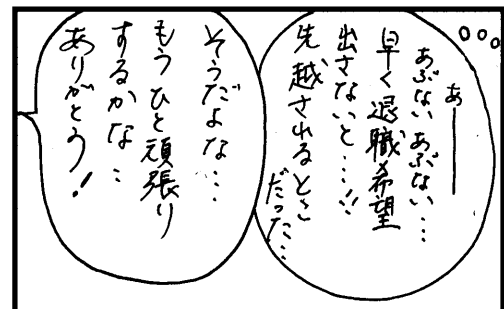 あーー
あぶないあぶない…
早く退職希望
出さないと…!!
先越されるとこ
だった…
そうだよな…
もうひと頑張り
するかな…
ありがとう!